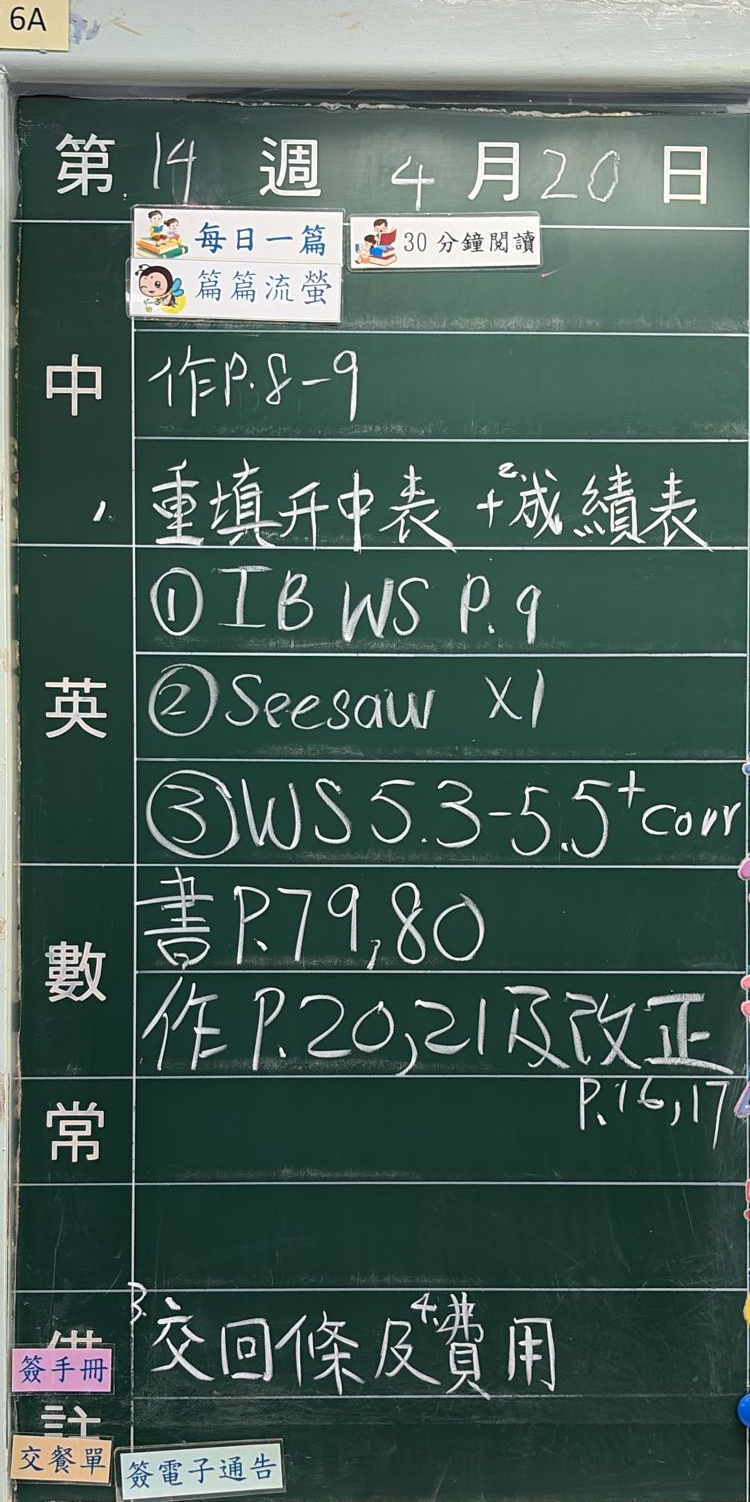 6A
第 14 週 4 月 20 日
每日一篇 30分鐘閱讀
篇篇流螢
中 作P.8-9
1. 重填升中表 + 2.成績表
① IB WS P.9
英 ② Seesaw X1
③ WS 5.3-5.5 + corr
書 P.79,80
數 作 P.20,21及改正
P.16,17
常
3. 交回條及 4.費用
備
簽手冊
註
交餐單 簽電子通告